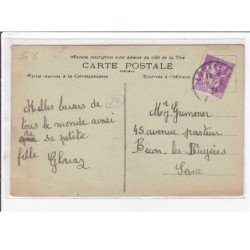 Aucune inscription n'est admise du côté de la Vue
CARTE POSTALE
Partie réservée à la Correspondance
Réservée à l'Adresse
Milles baisers de
tous le monde ainsi
de
sa petite
fille
Mr Grummer
45 avenue pasteur
Becon les Bruyères
Seine